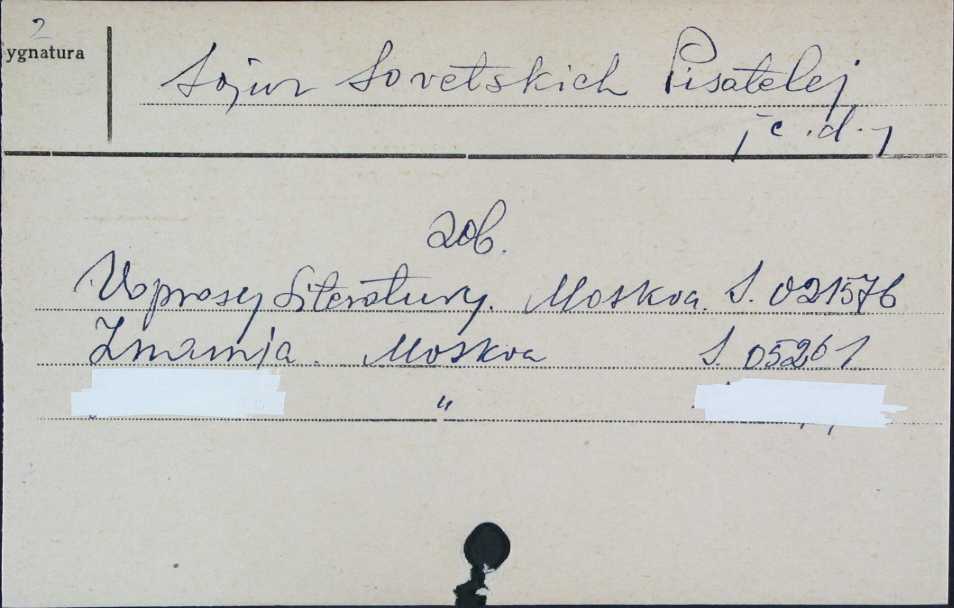 2
ygnatura
Sojuz Sovetskich Pisatelej
/c.d./
zob.
Voprosy Literatury. Moskva. S. 021576
Znamja. Moskva S. 05261
"